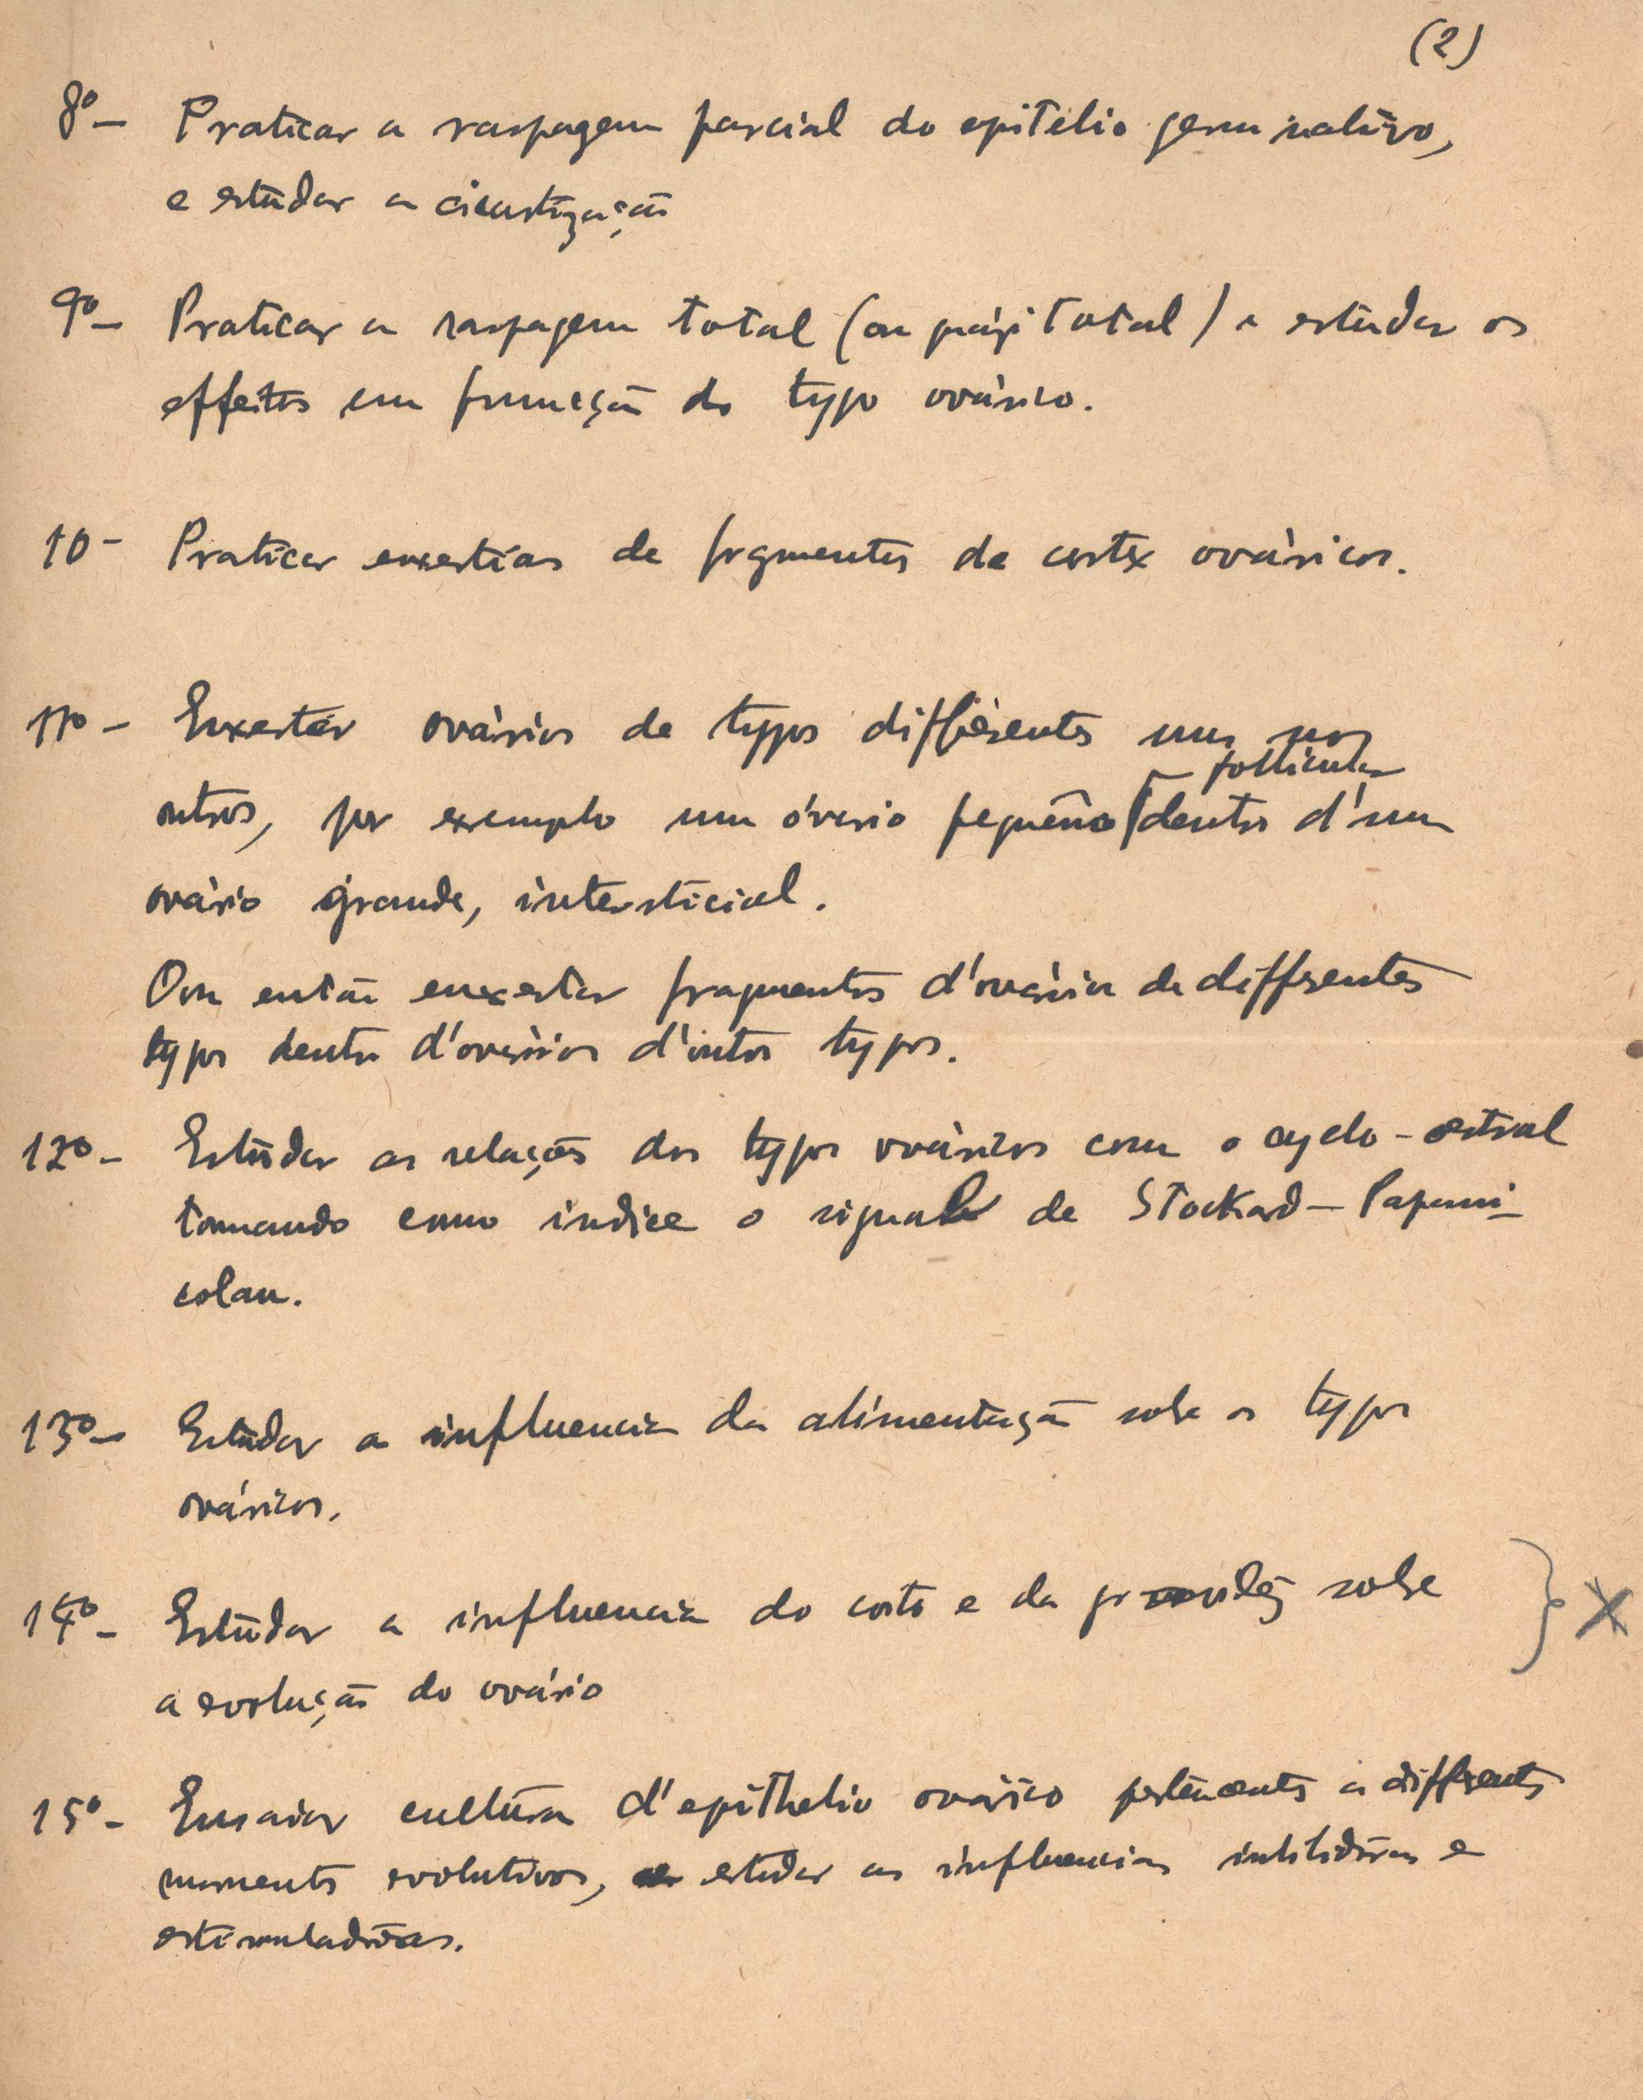 (2)
8º - Praticar a raspagem parcial do epitelio germinativo,
e estudar a cicatrização
9º - Praticar a raspagem total (ou quási total) e estudar os
effeitos em funcção do typo ovárico.
10 - Praticar enxertias de frgmentos de cortex ováricos.
11º - Enxertar ovários de typos differentes uns nos
follicular
outros, por exemplo um óvario pequêno dentro d'um
ovário grande, intersticial.
Ou então enxertar fragmentos d'ovários de differentes
typos dentro d'ovários d'outros typos.
12º - Estudar as relações dos typos ováricos com o cyclo-œstral
tomando como indice o signal de Stockard - Papani-
colau.
13º - Estudar a influencia da alimentação sobre os typos
ováricos.
14º - Estudar a influencia do coito e da gravidêz sobre
a evolução do ovário
15º - Ensaiar cultura d'epithelio ovárico pertencente a differentes
momentos evolutivos, estudar as influencias inhibidôras e
estimuladôras.